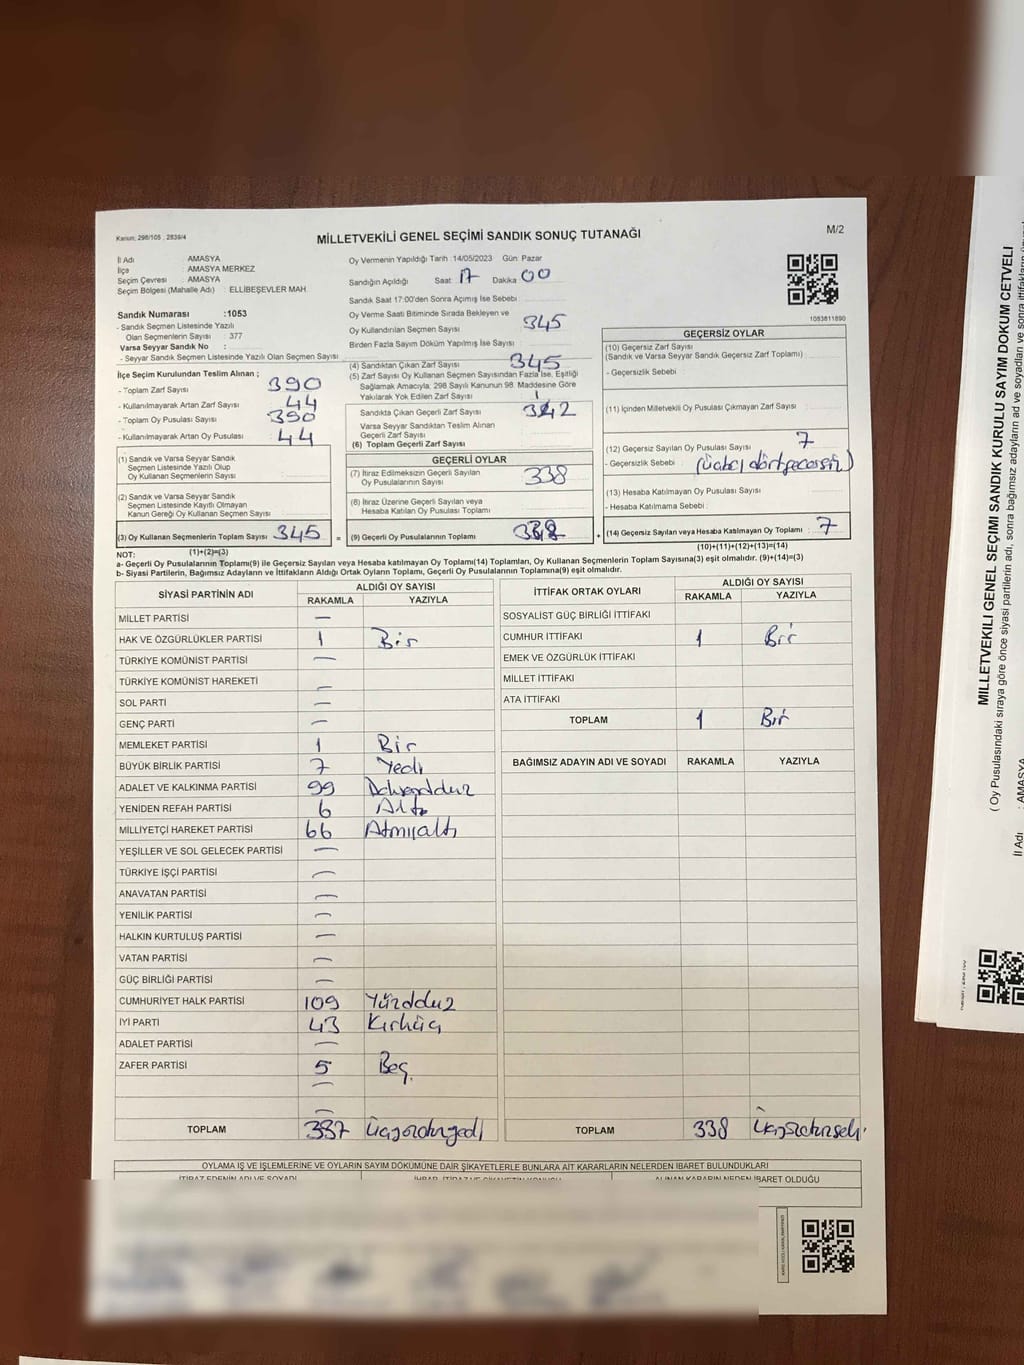 Kanun: 298/105 , 2839/4
MİLLETVEKİLİ GENEL SEÇİMİ SANDIK SONUÇ TUTANAĞI
M/2
İl Adı : AMASYA
İlçe : AMASYA MERKEZ
Seçim Çevresi : AMASYA
Seçim Bölgesi (Mahalle Adı) : ELLİBEŞEVLER MAH.
Sandık Numarası :1053
- Sandık Seçmen Listesinde Yazılı
Olan Seçmenlerin Sayısı : 377
Varsa Seyyar Sandık No :
- Seyyar Sandık Seçmen Listesinde Yazılı Olan Seçmen Sayısı :
İlçe Seçim Kurulundan Teslim Alınan ;
- Toplam Zarf Sayısı : 390
- Kullanılmayarak Artan Zarf Sayısı : 44
- Toplam Oy Pusulası Sayısı : 390
- Kullanılmayarak Artan Oy Pusulası : 44
(1) Sandık ve Varsa Seyyar Sandık
Seçmen Listesinde Yazılı Olup
Oy Kullanan Seçmenlerin Sayısı
(2) Sandık ve Varsa Seyyar Sandık
Seçmen Listesinde Kayıtlı Olmayan
Kanun Gereği Oy Kullanan Seçmen Sayısı
(3) Oy Kullanan Seçmenlerin Toplam Sayısı 345 =
(1)+(2)=(3)
Oy Vermenin Yapıldığı Tarih :14/05/2023 Gün: Pazar
Sandığın Açıldığı Saat : 17 Dakika : 00
Sandık Saat 17:00'den Sonra Açımış İse Sebebi :
Oy Verme Saati Bitiminde Sırada Bekleyen ve
Oy Kullandırılan Seçmen Sayısı : 345
Birden Fazla Sayım Döküm Yapılmış İse Sayısı :
(4) Sandıktan Çıkan Zarf Sayısı : 345
(5) Zarf Sayısı Oy Kullanan Seçmen Sayısından Fazla İse, Eşitliği
Sağlamak Amacıyla, 298 Sayılı Kanunun 98. Maddesine Göre
Yakılarak Yok Edilen Zarf Sayısı :
Sandıkta Çıkan Geçerli Zarf Sayısı :
Varsa Seyyar Sandıktan Teslim Alınan
Geçerli Zarf Sayısı :
(6) Toplam Geçerli Zarf Sayısı :
GEÇERLİ OYLAR
(7) İtiraz Edilmeksizin Geçerli Sayılan
Oy Pusulalarının Sayısı : 338
(8) İtiraz Üzerine Geçerli Sayılan veya
Hesaba Katılan Oy Pusulası Toplamı :
(9) Geçerli Oy Pusulalarının Toplamı : 338 +
1083811890
GEÇERSİZ OYLAR
(10) Geçersiz Zarf Sayısı
(Sandık ve Varsa Seyyar Sandık Geçersiz Zarf Toplamı) :
- Geçersizlik Sebebi :
(11) İçinden Milletvekili Oy Pusulası Çıkmayan Zarf Sayısı :
(12) Geçersiz Sayılan Oy Pusulası Sayısı : 7
- Geçersizlik Sebebi :
(13) Hesaba Katılmayan Oy Pusulası Sayısı :
- Hesaba Katılmama Sebebi :
(14) Geçersiz Sayılan veya Hesaba Katılmayan Oy Toplamı : 7
(10)+(11)+(12)+(13)=(14)
NOT:
a- Geçerli Oy Pusulalarının Toplamı(9) ile Geçersiz Sayılan veya Hesaba katılmayan Oy Toplamı(14) Toplamları, Oy Kullanan Seçmenlerin Toplam Sayısına(3) eşit olmalıdır. (9)+(14)=(3)
b- Siyasi Partilerin, Bağımsız Adayların ve İttifakların Aldığı Ortak Oyların Toplamı, Geçerli Oy Pusulalarının Toplamına(9) eşit olmalıdır.
SİYASİ PARTİNİN ADI ALDIĞI OY SAYISI
RAKAMLA YAZIYLA
MİLLET PARTİSİ —
HAK VE ÖZGÜRLÜKLER PARTİSİ 1 Bir
TÜRKİYE KOMÜNİST PARTİSİ —
TÜRKİYE KOMÜNİST HAREKETİ —
SOL PARTİ —
GENÇ PARTİ —
MEMLEKET PARTİSİ 1 Bir
BÜYÜK BİRLİK PARTİSİ 7 Yedi
ADALET VE KALKINMA PARTİSİ 99
YENİDEN REFAH PARTİSİ 6 Altı
MİLLİYETÇİ HAREKET PARTİSİ 66 Atmışaltı
YEŞİLLER VE SOL GELECEK PARTİSİ —
TÜRKİYE İŞÇİ PARTİSİ —
ANAVATAN PARTİSİ —
YENİLİK PARTİSİ —
HALKIN KURTULUŞ PARTİSİ —
VATAN PARTİSİ —
GÜÇ BİRLİĞİ PARTİSİ —
CUMHURİYET HALK PARTİSİ 109 Yüzdduz
İYİ PARTİ 43 Kırküç
ADALET PARTİSİ —
ZAFER PARTİSİ 5 Beş
—
—
TOPLAM 337 Üçyüzotuzyedi
İTTİFAK ORTAK OYLARI ALDIĞI OY SAYISI
RAKAMLA YAZIYLA
SOSYALİST GÜÇ BİRLİĞİ İTTİFAKI
CUMHUR İTTİFAKI 1 Bir
EMEK VE ÖZGÜRLÜK İTTİFAKI
MİLLET İTTİFAKI
ATA İTTİFAKI
TOPLAM 1 Bir
BAĞIMSIZ ADAYIN ADI VE SOYADI RAKAMLA YAZIYLA
TOPLAM 338
OYLAMA İŞ VE İŞLEMLERİNE VE OYLARIN SAYIM DÖKÜMÜNE DAİR ŞİKAYETLERLE BUNLARA AİT KARARLARIN NELERDEN İBARET BULUNDUKLARI
İTİRAZ EDENİN ADI VE SOYADI İHBAR, İTİRAZ VE ŞİKAYETİN KONUSU ALINAN KARARIN NEDEN İBARET OLDUĞU
MİLLETVEKİLİ GENEL SEÇİMİ SANDIK KURULU SAYIM DÖKÜM CETVELİ
( Oy Pusulasındaki sıraya göre önce siyasi partilerin adı, sonra bağımsız adayların ad ve soyadları ve sonra ittifakların
İl Adı : AMASYA